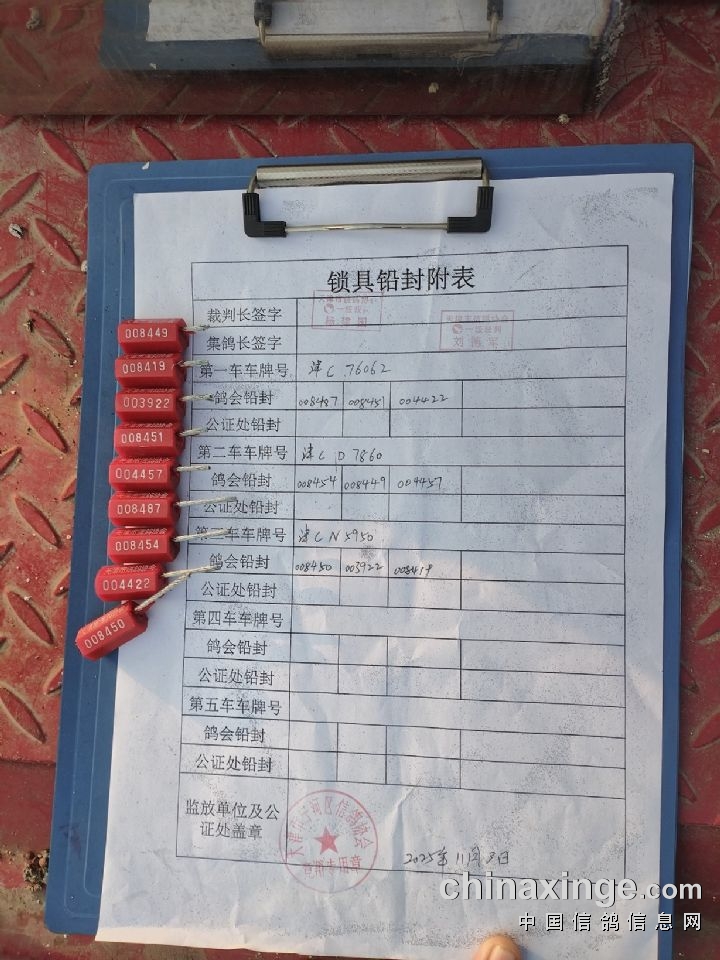 锁具铅封附表
裁判长签字
一级裁判
集鸽长签字
一级裁判
第一车车牌号 津C 76062
鸽会铅封 008487 008451 004422
公证处铅封
第二车车牌号 津C D7860
鸽会铅封 008454 008449 004457
公证处铅封
第三车车牌号 津C N5950
鸽会铅封 008450 003922 008419
公证处铅封
第四车车牌号
鸽会铅封
公证处铅封
第五车车牌号
鸽会铅封
公证处铅封
监放单位及公
证处盖章
2025年11月8日
008449
008419
003922
008451
004457
008487
008454
004422
008450
chinaxinge.com
中国信鸽信息网